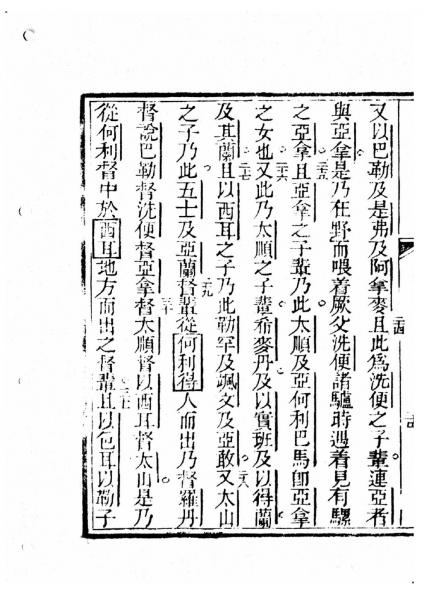 又以巴勒及是弗及阿拿麥且此爲洗便之子輩連亞者
與亞拿是乃在野而喂着厥父洗便諸驢時遇着見有騾
之亞拿且亞拿之子輩乃此太順及亞何利巴馬卽亞拿
之女也又此乃太順之子輩希麥丹及以實班及以得蘭
及其蘭且以西耳之子乃此勒罕及颯文及亞敢又太山
之子乃此五士及亞蘭督輩從何利得人而出乃督羅丹
督說巴勒督洗便督亞拿督太順督以西耳督太山是乃
從何利督中於西耳地方而出之督輩且以色耳以勒子
二四
二五
二六
二七
二八
二九
三十
三一